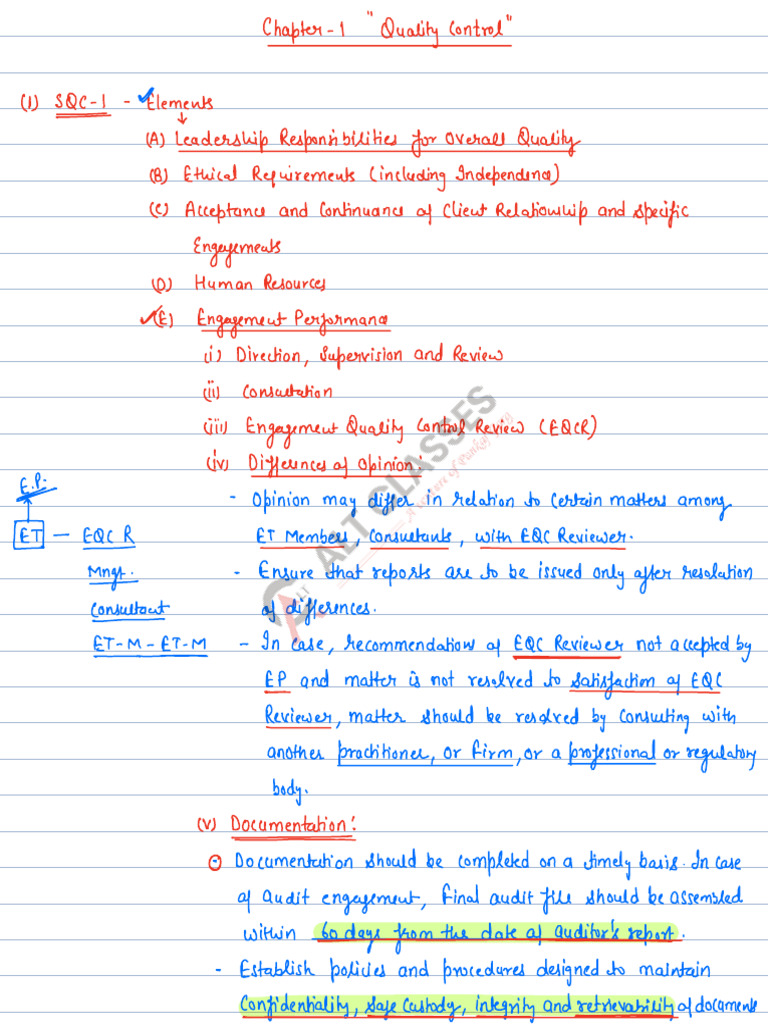 Chapter-1 "Quality Control"
(1) SQC-1 - Elements
(A) Leadership Responsibilities for Overall Quality
(B) Ethical Requirements (including Independence)
(C) Acceptance and Continuance of Client Relationship and Specific
Engagements
(D) Human Resources
(E) Engagement Performance
(i) Direction, Supervision and Review
(ii) Consultation
(iii) Engagement Quality Control Review (EQCR)
(iv) Differences of Opinion:
E.P.
- Opinion may differ in relation to certain matters among
ET - EQC R
ET Members, Consultants, with EQC Reviewer.
Mngt.
- Ensure that reports are to be issued only after resolation
Consultant
of differences.
ET-M-ET-M
- In case, recommendation of EQC Reviewer not accepted by
EP and matter is not resolved to satisfaction of EQC
Reviewer, matter should be resolved by consulting with
another practitioner, or firm, or a professional or regulatory
body.
(v) Documentation:
- Documentation should be completed on a timely basis. In case
of audit engagement, final audit file should be assembled
within 60 days from the date of auditor's report.
- Establish policies and procedures designed to maintain
Confidentiality, safe custody, integrity and retrievability of documents
ALT CLASSES